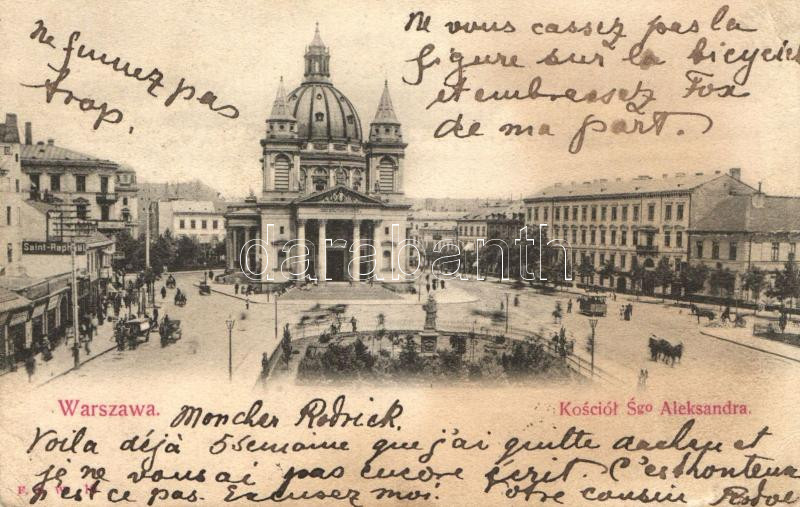 Ne fumez pas
trop.
Ne vous cassez pas la
figure sur la bicycle
et embrassez Fox
de ma part.
Saint-Raphaël
darabanth
Warszawa.
Kościół Śgo Aleksandra.
Moncher Rodrick.
Voila déjà 5 semaine que j'ai quitte aachen et
je ne vous ai pas encore écrit. C'est honteux
n'est ce pas. Excusez moi. Votre cousin